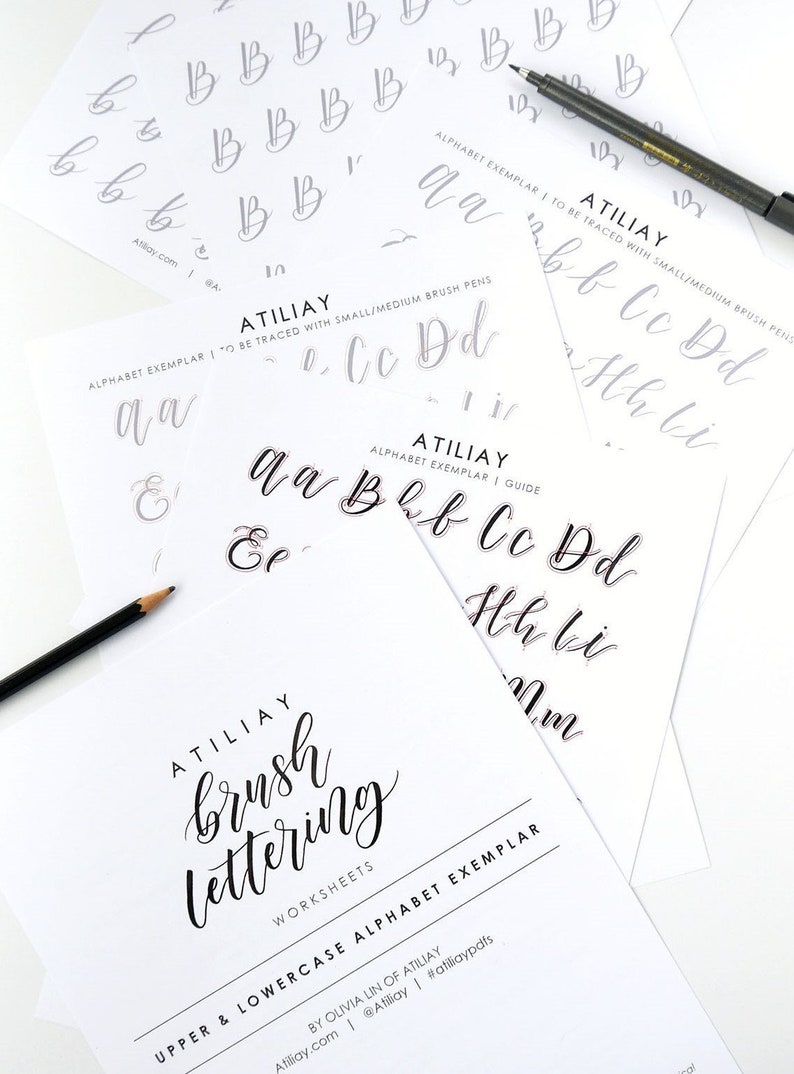 B B B B B
b B B B B B B B
b b B B B B
b b b b B B
Atiliay.com | @A
ATILIAY
ALPHABET EXEMPLAR | TO BE TRACED WITH SMALL/MEDIUM BRUSH PENS
a a B b b C c D d
H h I i
ATILIAY
ALPHABET EXEMPLAR | TO BE TRACED WITH SMALL/MEDIUM BRUSH PENS
a a b C c D d
E
ATILIAY
ALPHABET EXEMPLAR | GUIDE
a a B b b C c D d
E e H h I i
M m
ATILIAY
brush
lettering
WORKSHEETS
UPPER & LOWERCASE ALPHABET EXEMPLAR
BY OLIVIA LIN OF ATILIAY
Atiliay.com | @Atiliay | #atiliaypdfs